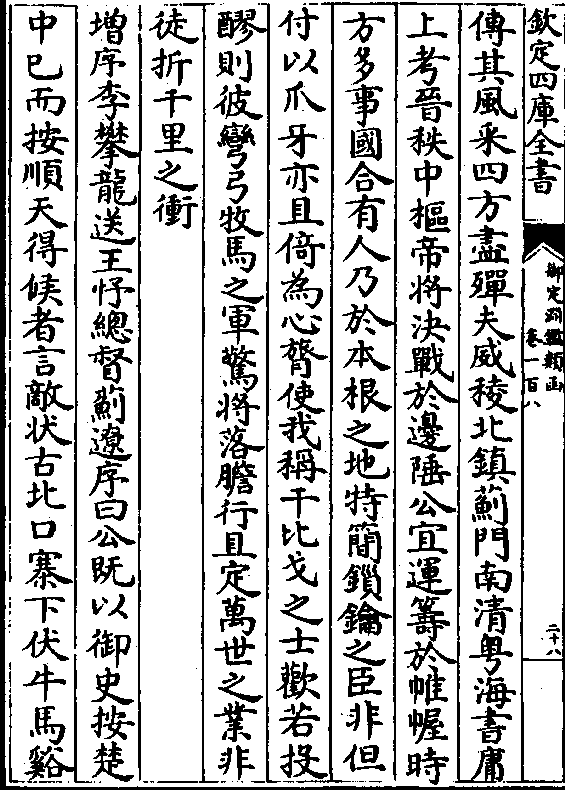 欽定四庫全書
御定淵鑑類函
卷一百八
二十八
傳其風采四方盡殫夫威稜北鎮薊門南清粤海書庸
上考晉秩中樞帝將決戰於邊陲公宜運籌於帷幄時
方多事國合有人乃於本根之地特簡鎖鑰之臣非但
付以爪牙亦且倚為心膂使我稱干比戈之士歡若投
醪則彼彎弓牧馬之軍驚將落膽行且定萬世之業非
徒折千里之衝
增序李攀龍送王忬總督薊遼序曰公既以御史按楚
中已而按順天得候者言敵状古北口寨下伏牛馬谿